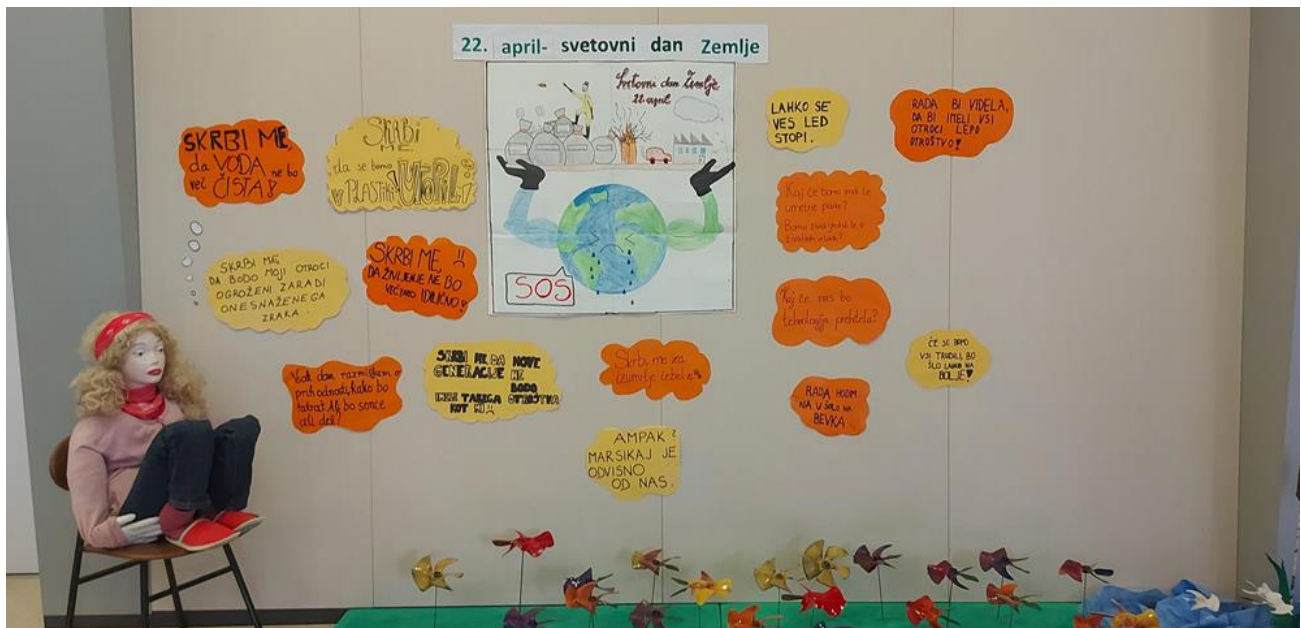 22. april- svetovni dan Zemlje
Svetovni dan Zemlje
22. april
SOS
SKRBI ME,
da VODA ne bo
več ČISTA!
SKRBI
ME,
da se bomo
v PLASTIKI UTOPILI!
SKRBI ME,
DA BODO MOJI OTROCI
OGROŽENI ZARADI
ONESNAŽENEGA
ZRAKA.
SKRBI ME,
DA ŽIVLJENJE NE BO
VEČ TAKO IDILIČNO!
Vsak dan razmišljam o
prihodnosti, kako bo
takrat. Ali bo sonce
ali dež?
SKRBI ME DA NOVE
GENERACIJE NE
BODO
IMELE TAKEGA OTROŠTVA
KOT MI
Skrbi me za
izumrtje čebel.
AMPAK
MARSIKAJ JE
ODVISNO
OD NAS.
LAHKO SE
VES LED
STOPI.
RADA BI VIDELA,
DA BI IMELI VSI
OTROCI LEPO
OTROŠTVO!
Kaj če bomo imeli le
umetne parke?
Bomo živali gledali le v
živalskih vrtovih?
Kaj če nas bo
tehnologija prehitela?
RADA HODIM
NA V ŠOLO NA
BEVKA.
ČE SE BOMO
VSI TRUDILI, BO
ŠLO LAHKO NA
BOLJE!